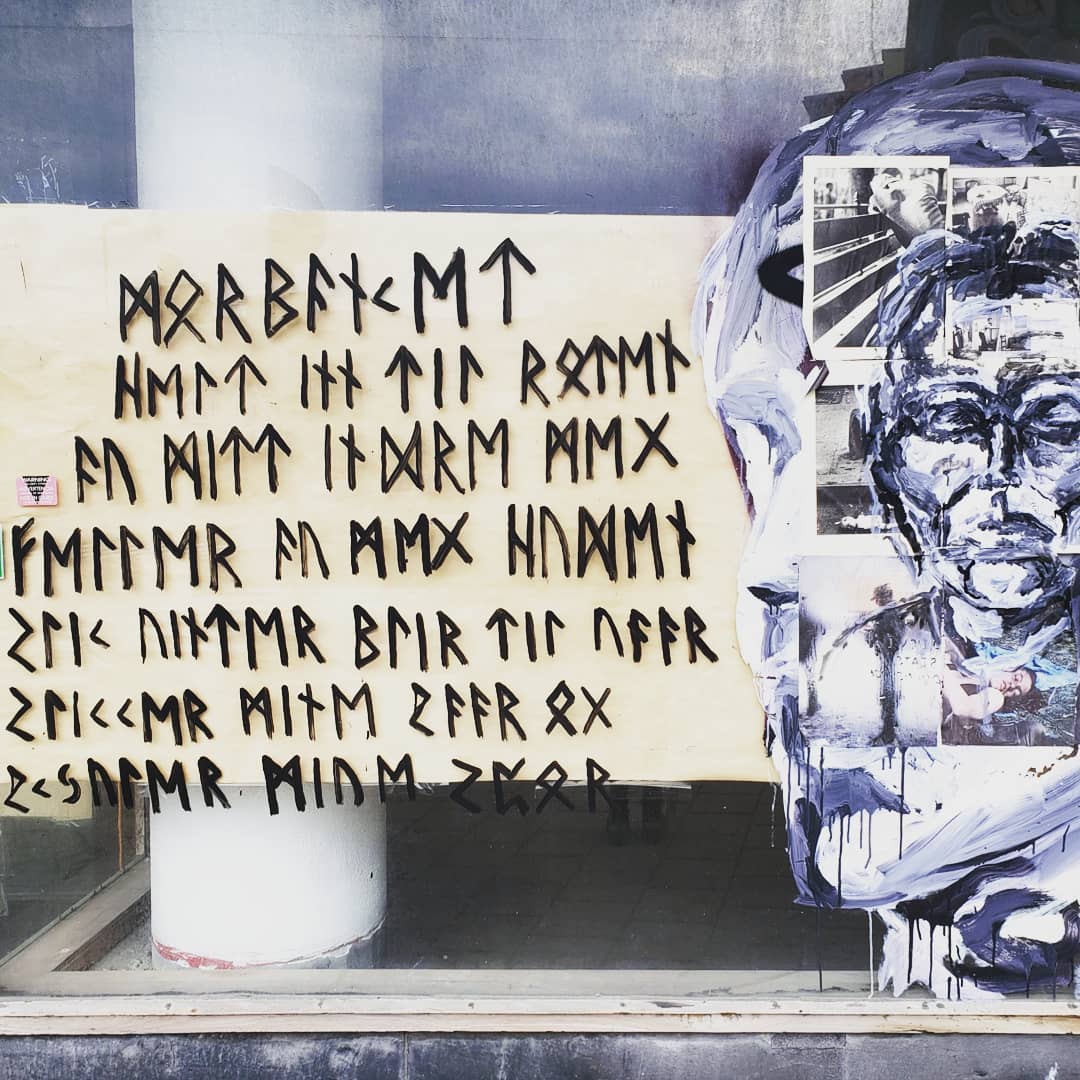 ᛗᛟᚱᛒᚨᚾᚲEᛏ
ᚺEᛚᛏ ᛁᚾᚾ ᛏᛁᛚ ᚱᛟᛏEᚾ
ᚨᚢ ᛗᛁᛏᛏ ᛁᚾᛞᚱE ᛗEᚷ
ᚠEᛚᛚEᚱ ᚨᚢ ᛗEᚷ ᚺᚢᛞEᚾ
ᛊᛚᛁᚲ ᚢᛁᚾᛏEᚱ ᛒᛚᛁᚱ ᛏᛁᛚ ᚢᚨᚨᚱ
ᛊᛚᛁᚲᚲEᚱ ᛗᛁᚾE ᛊᚨᚨᚱ ᛟᚷ
ᛊᚲᛃᚢᛚEᚱ ᛗᛁᚢE ᛊᛈᛟᚱ